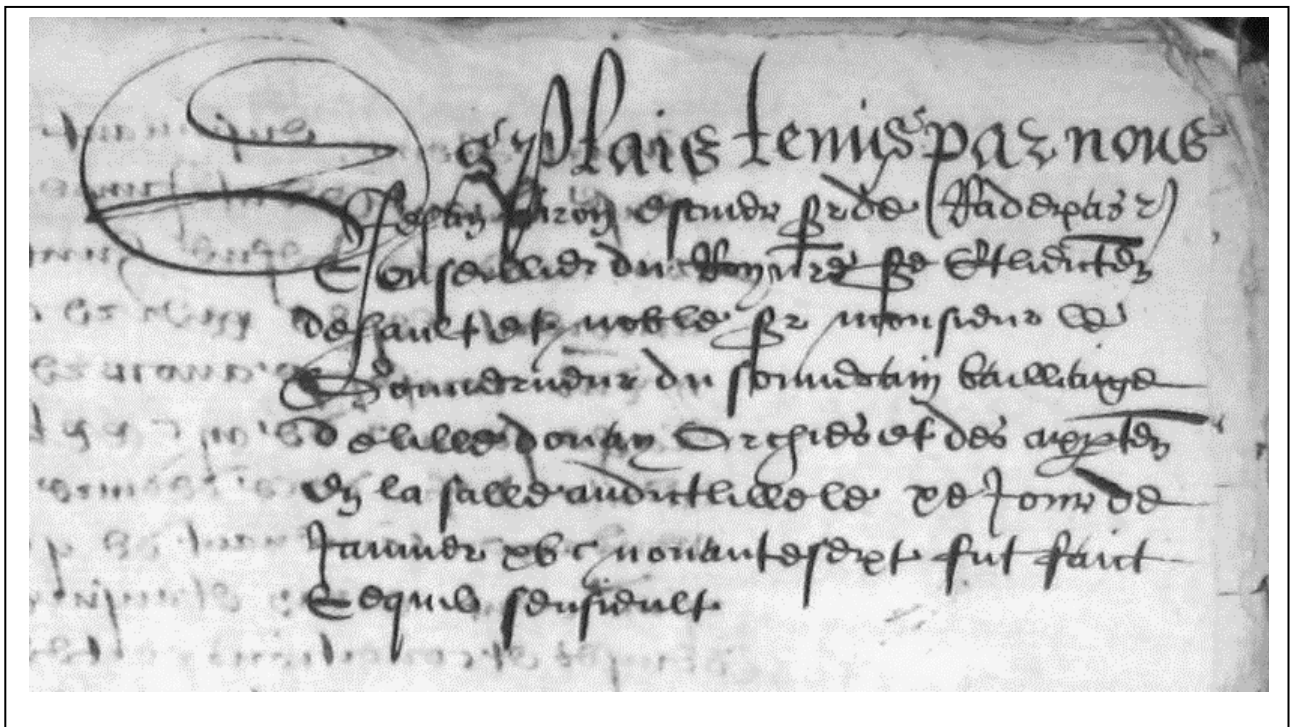 Es plais tenus par nous
Jehan escuier sr de
Conseillier du Roy nre sr et lieuten
de hault et noble sr monsieur le
Gouverneur du souverain bailliaige
de lille douay Orchies et des appten
en la salle audict lille le xe Jour de
Janvier xvc nonante sept fut faict
Ce quil sensieult